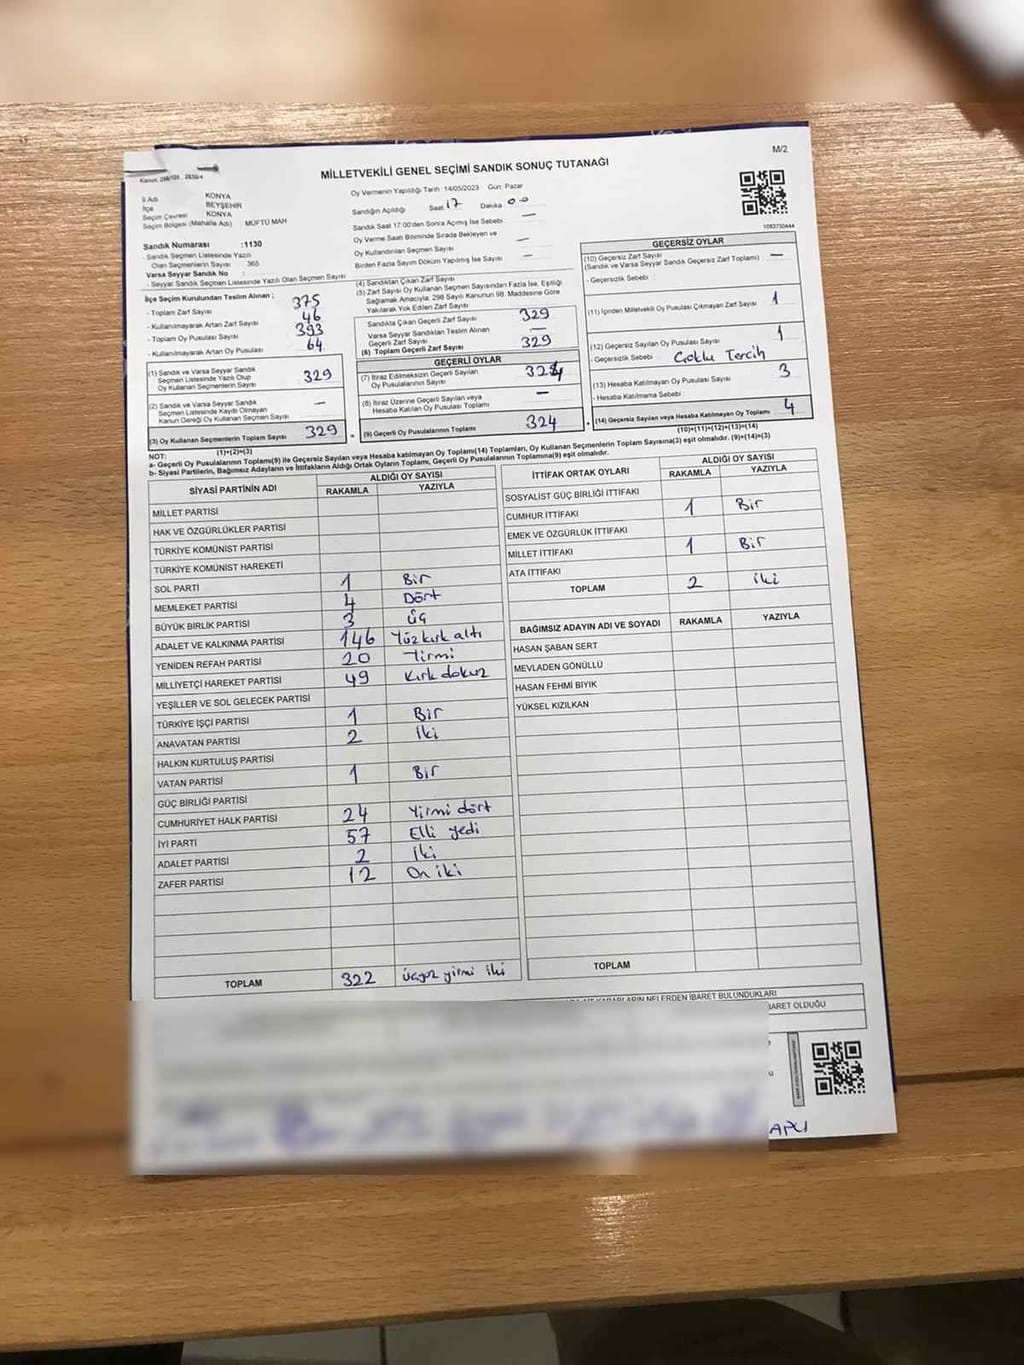 M/2
MİLLETVEKİLİ GENEL SEÇİMİ SANDIK SONUÇ TUTANAĞI
Oy Vermenin Yapıldığı Tarih :14/05/2023 Gün: Pazar
1083730444
İl Adı KONYA
İlçe BEYŞEHİR
Seçim Çevresi KONYA
Seçim Bölgesi (Mahalle Adı) MÜFTÜ MAH
Sandık Numarası :1130
- Sandık Seçmen Listesinde Yazılı
Olan Seçmenlerin Sayısı 365
Varsa Seyyar Sandık No :
- Seyyar Sandık Seçmen Listesinde Yazılı Olan Seçmen Sayısı
Sandığın Açıldığı Saat 17 Dakika 00
Sandık Saat 17:00'den Sonra Açılmış İse Sebebi —
Oy Verme Saati Bitiminde Sırada Bekleyen ve
Oy Kullandırılan Seçmen Sayısı —
Birden Fazla Sayım Döküm Yapılmış İse Sayısı —
İlçe Seçim Kurulundan Teslim Alınan ;
- Toplam Zarf Sayısı 375
- Kullanılmayarak Artan Zarf Sayısı 46
- Toplam Oy Pusulası Sayısı 393
- Kullanılmayarak Artan Oy Pusulası 64
(1) Sandık ve Varsa Seyyar Sandık
Seçmen Listesinde Yazılı Olup
Oy Kullanan Seçmenlerin Sayısı 329
(2) Sandık ve Varsa Seyyar Sandık
Seçmen Listesinde Kaydı Olmayan
Kanun Gereği Oy Kullanan Seçmen Sayısı —
(3) Oy Kullanan Seçmenlerin Toplam Sayısı 329
(1)+(2)=(3)
(4) Sandıktan Çıkan Zarf Sayısı
(5) Zarf Sayısı Oy Kullanan Seçmen Sayısından Fazla İse, Eşitliği
Sağlamak Amacıyla; 298 Sayılı Kanunun 98. Maddesine Göre
Yakılarak Yok Edilen Zarf Sayısı
Sandıkta Çıkan Geçerli Zarf Sayısı 329
Varsa Seyyar Sandıktan Teslim Alınan
Geçerli Zarf Sayısı —
(6) Toplam Geçerli Zarf Sayısı 329
GEÇERLİ OYLAR
(7) İtiraz Edilmeksizin Geçerli Sayılan
Oy Pusulalarının Sayısı 324
(8) İtiraz Üzerine Geçerli Sayılan veya
Hesaba Katılan Oy Pusulası Toplamı —
(9) Geçerli Oy Pusulalarının Toplamı 324
GEÇERSİZ OYLAR
(10) Geçersiz Zarf Sayısı —
(Sandık ve Varsa Seyyar Sandık Geçersiz Zarf Toplamı)
- Geçersizlik Sebebi :
(11) İçinden Milletvekili Oy Pusulası Çıkmayan Zarf Sayısı 1
(12) Geçersiz Sayılan Oy Pusulası Sayısı 1
- Geçersizlik Sebebi Çoklu Tercih
(13) Hesaba Katılmayan Oy Pusulası Sayısı 3
- Hesaba Katılmama Sebebi
(14) Geçersiz Sayılan veya Hesaba Katılmayan Oy Toplamı 4
(10)+(11)+(12)+(13)=(14)
NOT:
a- Geçerli Oy Pusulalarının Toplamı(9) ile Geçersiz Sayılan veya Hesaba Katılmayan Oy Toplamı(14) Toplamları, Oy Kullanan Seçmenlerin Toplam Sayısına(3) eşit olmalıdır. (9)+(14)=(3)
b- Siyasi Partilerin, Bağımsız Adayların ve İttifakların Aldığı Ortak Oyların Toplamı, Geçerli Oy Pusulalarının Toplamına(9) eşit olmalıdır.
SİYASİ PARTİNİN ADI ALDIĞI OY SAYISI
RAKAMLA YAZIYLA
MİLLET PARTİSİ
HAK VE ÖZGÜRLÜKLER PARTİSİ
TÜRKİYE KOMÜNİST PARTİSİ
TÜRKİYE KOMÜNİST HAREKETİ
SOL PARTİ 1 Bir
MEMLEKET PARTİSİ 4 Dört
BÜYÜK BİRLİK PARTİSİ 3 Üç
ADALET VE KALKINMA PARTİSİ 146 Yüz kırk altı
YENİDEN REFAH PARTİSİ 20 Yirmi
MİLLİYETÇİ HAREKET PARTİSİ 49 Kırk dokuz
YEŞİLLER VE SOL GELECEK PARTİSİ
TÜRKİYE İŞÇİ PARTİSİ 1 Bir
ANAVATAN PARTİSİ 2 İki
HALKIN KURTULUŞ PARTİSİ
VATAN PARTİSİ 1 Bir
GÜÇ BİRLİĞİ PARTİSİ
CUMHURİYET HALK PARTİSİ 24 Yirmi dört
İYİ PARTİ 57 Elli yedi
ADALET PARTİSİ 2 İki
ZAFER PARTİSİ 12 On iki
TOPLAM 322 Üçyüz yirmi iki
İTTİFAK ORTAK OYLARI ALDIĞI OY SAYISI
RAKAMLA YAZIYLA
SOSYALİST GÜÇ BİRLİĞİ İTTİFAKI
CUMHUR İTTİFAKI 1 Bir
EMEK VE ÖZGÜRLÜK İTTİFAKI
MİLLET İTTİFAKI 1 Bir
ATA İTTİFAKI
TOPLAM 2 İki
BAĞIMSIZ ADAYIN ADI VE SOYADI RAKAMLA YAZIYLA
HASAN ŞABAN SERT
MEVLADEN GÖNÜLLÜ
HASAN FEHMİ BIYIK
YÜKSEL KIZILKAN
TOPLAM
NELERDEN İBARET BULUNDUKLARI
İBARET OLDUĞU